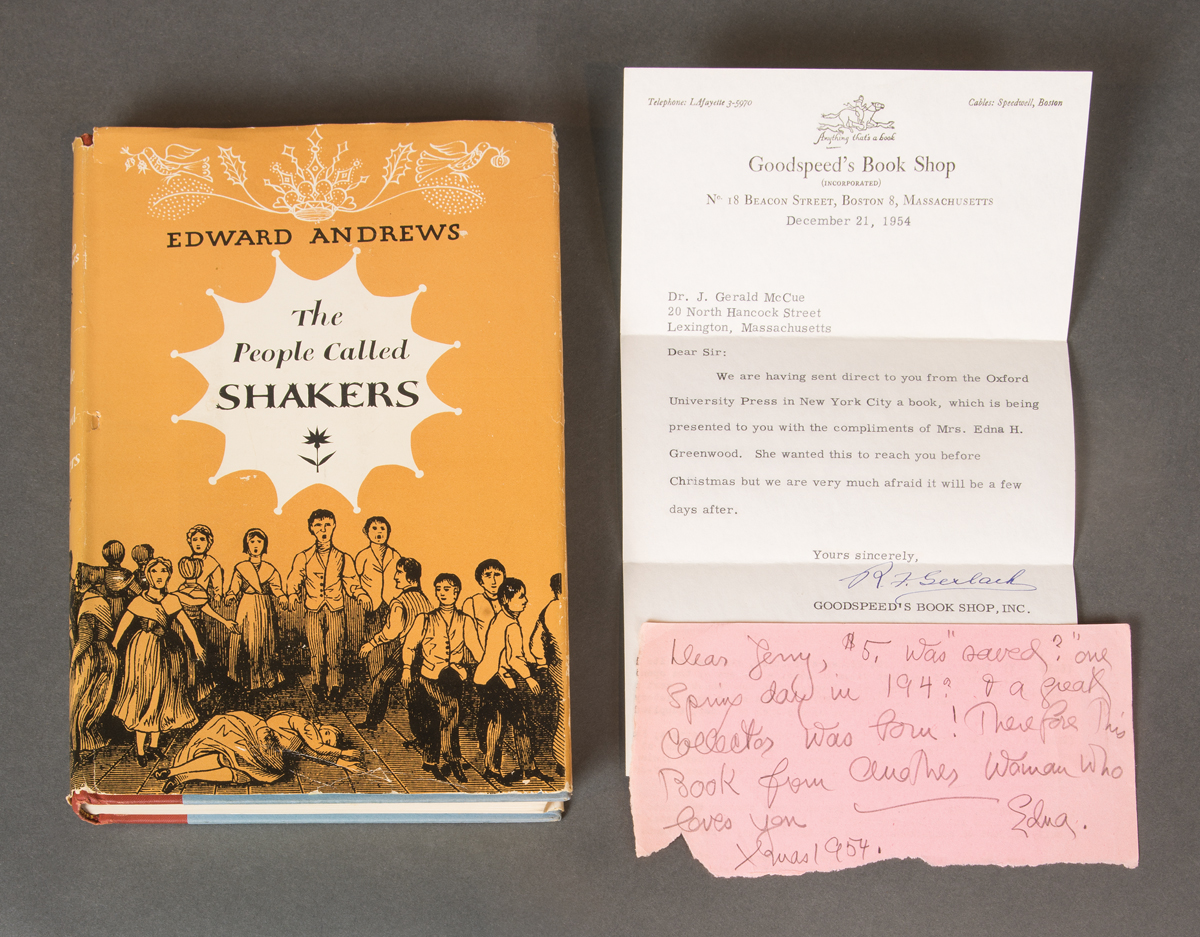 EDWARD ANDREWS
The
People Called
SHAKERS
Telephone: LAfayette 3-5970
Cables: Speedwell, Boston
Anything that's a book
Goodspeed's Book Shop
(INCORPORATED)
No. 18 BEACON STREET, BOSTON 8, MASSACHUSETTS
December 21, 1954
Dr. J. Gerald McCue
20 North Hancock Street
Lexington, Massachusetts
Dear Sir:
We are having sent direct to you from the Oxford
University Press in New York City a book, which is being
presented to you with the compliments of Mrs. Edna H.
Greenwood. She wanted this to reach you before
Christmas but we are very much afraid it will be a few
days after.
Yours sincerely,
R. F. Gerlach
GOODSPEED'S BOOK SHOP, INC.
Dear Jerry, $5. was "saved?" one
Spring day in 194? & a great
Collector was born! Therefore This
Book from another Woman Who
loves you
Edna.
Xmas 1954.